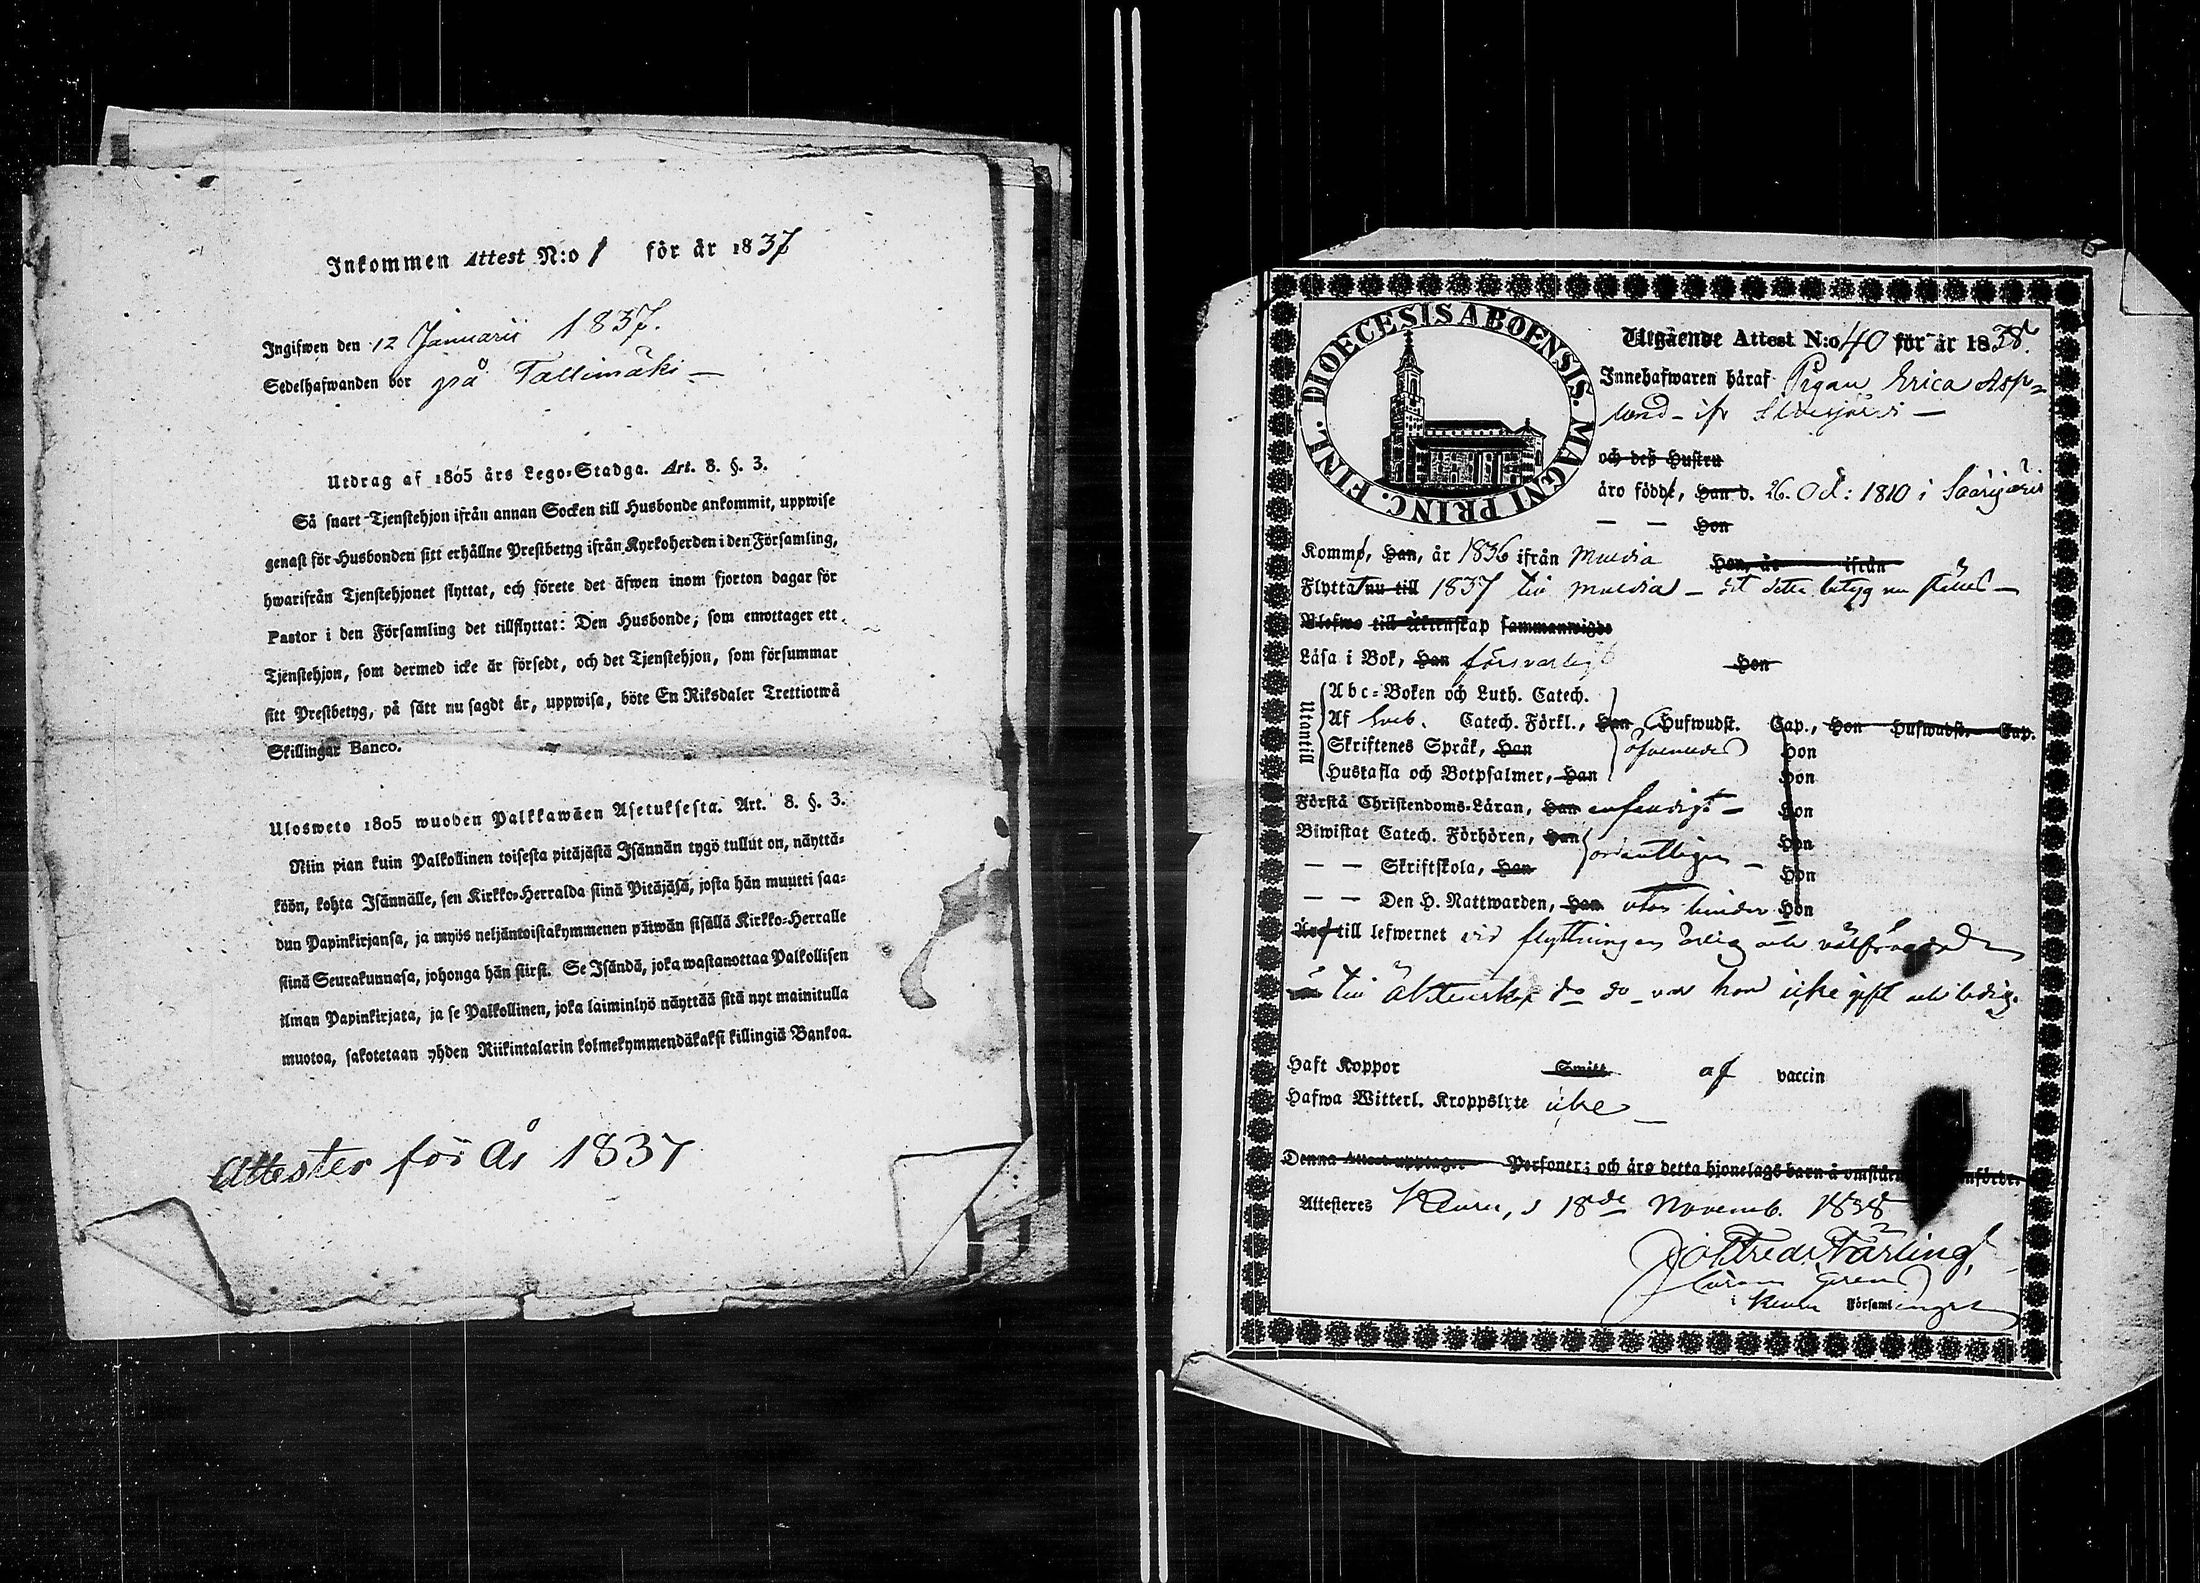 Inkommen Attest N:o 1 för år 1837
Ingifwen den 12 Januarii 1837.
Sedelhafwanden bor på Tallimäki
Utdrag af 1805 års Lego-Stadga. Art. 8. §. 3.
Så snart Tjenstehjon ifrån annan Socken till Husbonde ankommit, uppwise
genast för Husbonden sitt erhållne Prestbetyg ifrån Kyrkoherden i den Församling,
hwarifrån Tjenstehjonet flyttat, och förete det äfwen inom fjorton dagar för
Pastor i den Församling det tillflyttat: Den Husbonde, som emottager ett
Tjenstehjon, som dermed icke är försedt, och det Tjenstehjon, som försummar
sitt Prestbetyg, på sätt nu sagdt är, uppwisa, böte En Riksdaler Trettiotwå
Skillingar Banco.
Ulosweto 1805 wuoden Palkkawäen Asetuksesta. Art. 8. §. 3.
Niin pian kuin Palkollinen toisesta pitäjästä Isännän tygö tullut on, näyttä-
köön, kohta Isännälle, sen Kirkko-Herralda siinä Pitäjäsä, josta hän muutti saa-
dun Papinkirjansa, ja myös neljäntoistakymmenen päiwän sisällä Kirkko-Herralle
siinä Seurakunnasa, johonga hän siirsi. Se Isändä, joka wastanottaa Palkollisen
ilman Papinkirjata, ja se Palkollinen, joka laiminlyö näyttää sitä nyt mainitulla
muotoa, sakotetaan yhden Riikintalarin kolmekymmendäkaksi killingiä Bankoa.
Attester för År 1837
DIOECESIS ABOENSIS. MAGNI PRINC. FINL.
Utgående Attest N:o 40 för år 1838.
Innehafwaren häraf Pigan Erica Asp=
lund ifr
och deß Hustru
äro födde, Han d. 26. Oct: 1810 i Saarijärvi
— — Hon
Komme, Han, år 1836 ifrån Multia Hon, år ifrån
Flyttat nu till 1837 till Multia dit detta betyg nu ställes
Blefwo till Äktenskap sammanwigde
Läsa i Bok, Han försvarligt Hon
Utantill
Abc-Boken och Luth. Catech.
Af Sveb. Catech. Förkl., Han Hufwudst. Cap., Hon Hufwudst. Cap.
Skriftenes Språk, Han Hon
Hustafla och Botpsalmer, Han Hon
Förstå Christendoms-Läran, Han enfaldigt Hon
Biwistat Catech. Förhören, Han ordentligen Hon
— — Skriftskola, Han Hon
— — Den H. Nattwarden, Han utan hinder Hon
Äro till lefwernet vid flyttningen ärlig och välfrägdad
till äktenskap do do var hon icke gift utan ledig.
Haft Koppor Smitt af vaccin
Hafwa Witterl. Kroppslyte icke
Denna Attest upptager Personer; och äro detta hjonelags barn å omstående
Attesteres Keuru, d 18de Novemb. 1838
Färling,
i Keuru Församlingar